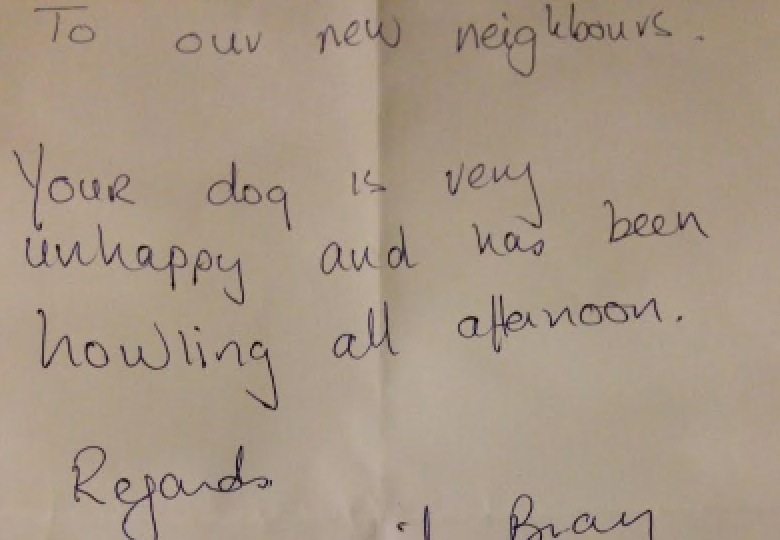 To our new neighbours.
Your dog is very
unhappy and has been
howling all afternoon.
Regards
Bray